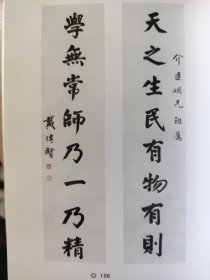 天之生民有物有則
學無常師乃一乃精
戴傳賢
198